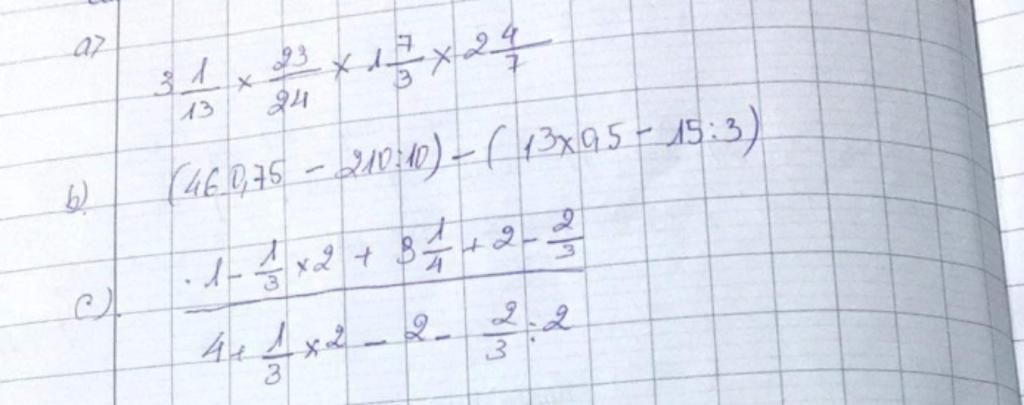 a) 3 1/13 × 23/24 × 1 7/3 × 2 4/7
b) (46 0,75 - 210:10) - ( 13×0,5 - 15:3)
c) (1 - 1/3 ×2 + 3 1/4 + 2 - 2/3) / (4 + 1/3 ×2 - 2 - 2/3 : 2)